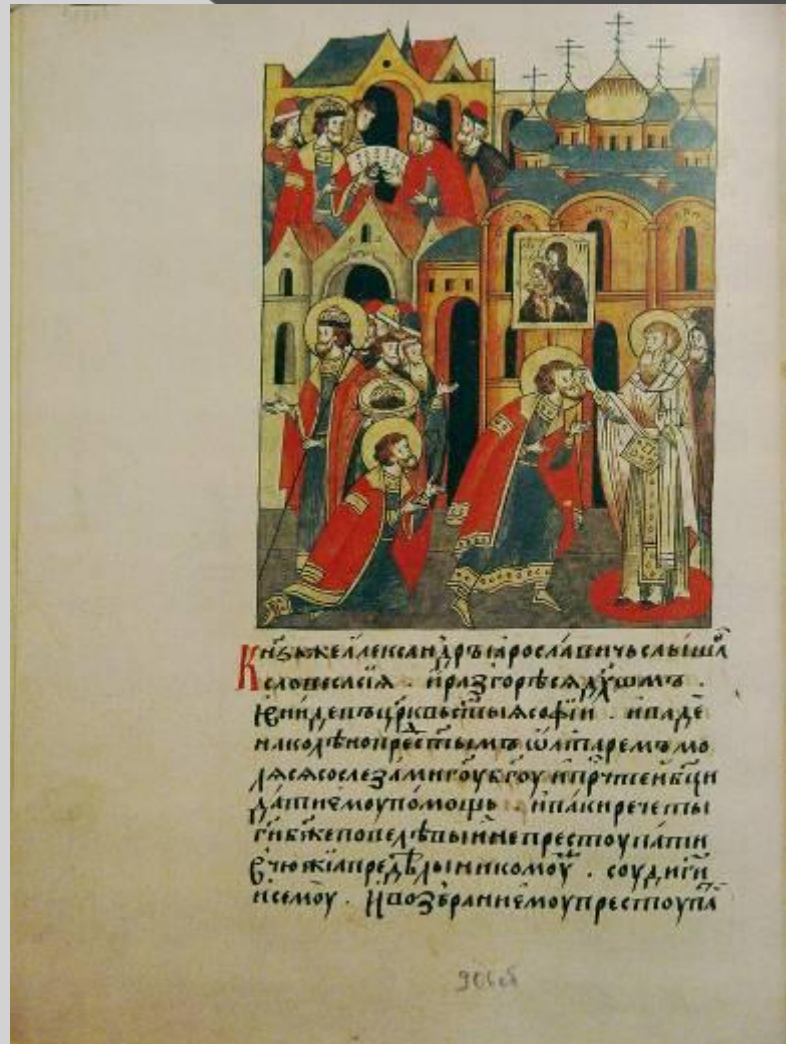 Кн҃зь же алеѯандръ ꙗрославичь слышꙋ
словеса сиѧ . и разгорѣсѧ дх҃омъ .
и вниде въ црк҃вь ст҃ыѧ софїи . и паде
на колѣно прест҃ымъ ѡлтаремъ мо
лѧсѧ со слезами гоу бг҃оу и прч҃тєи бц҃и
дати ємоу помощь . и паки рече ты
ги бж҃е повелѣвыи не престоупати
чюжїа предѣлы никомоу . соуди ги
и семоу . и возбрани ємоу престоупа
906об